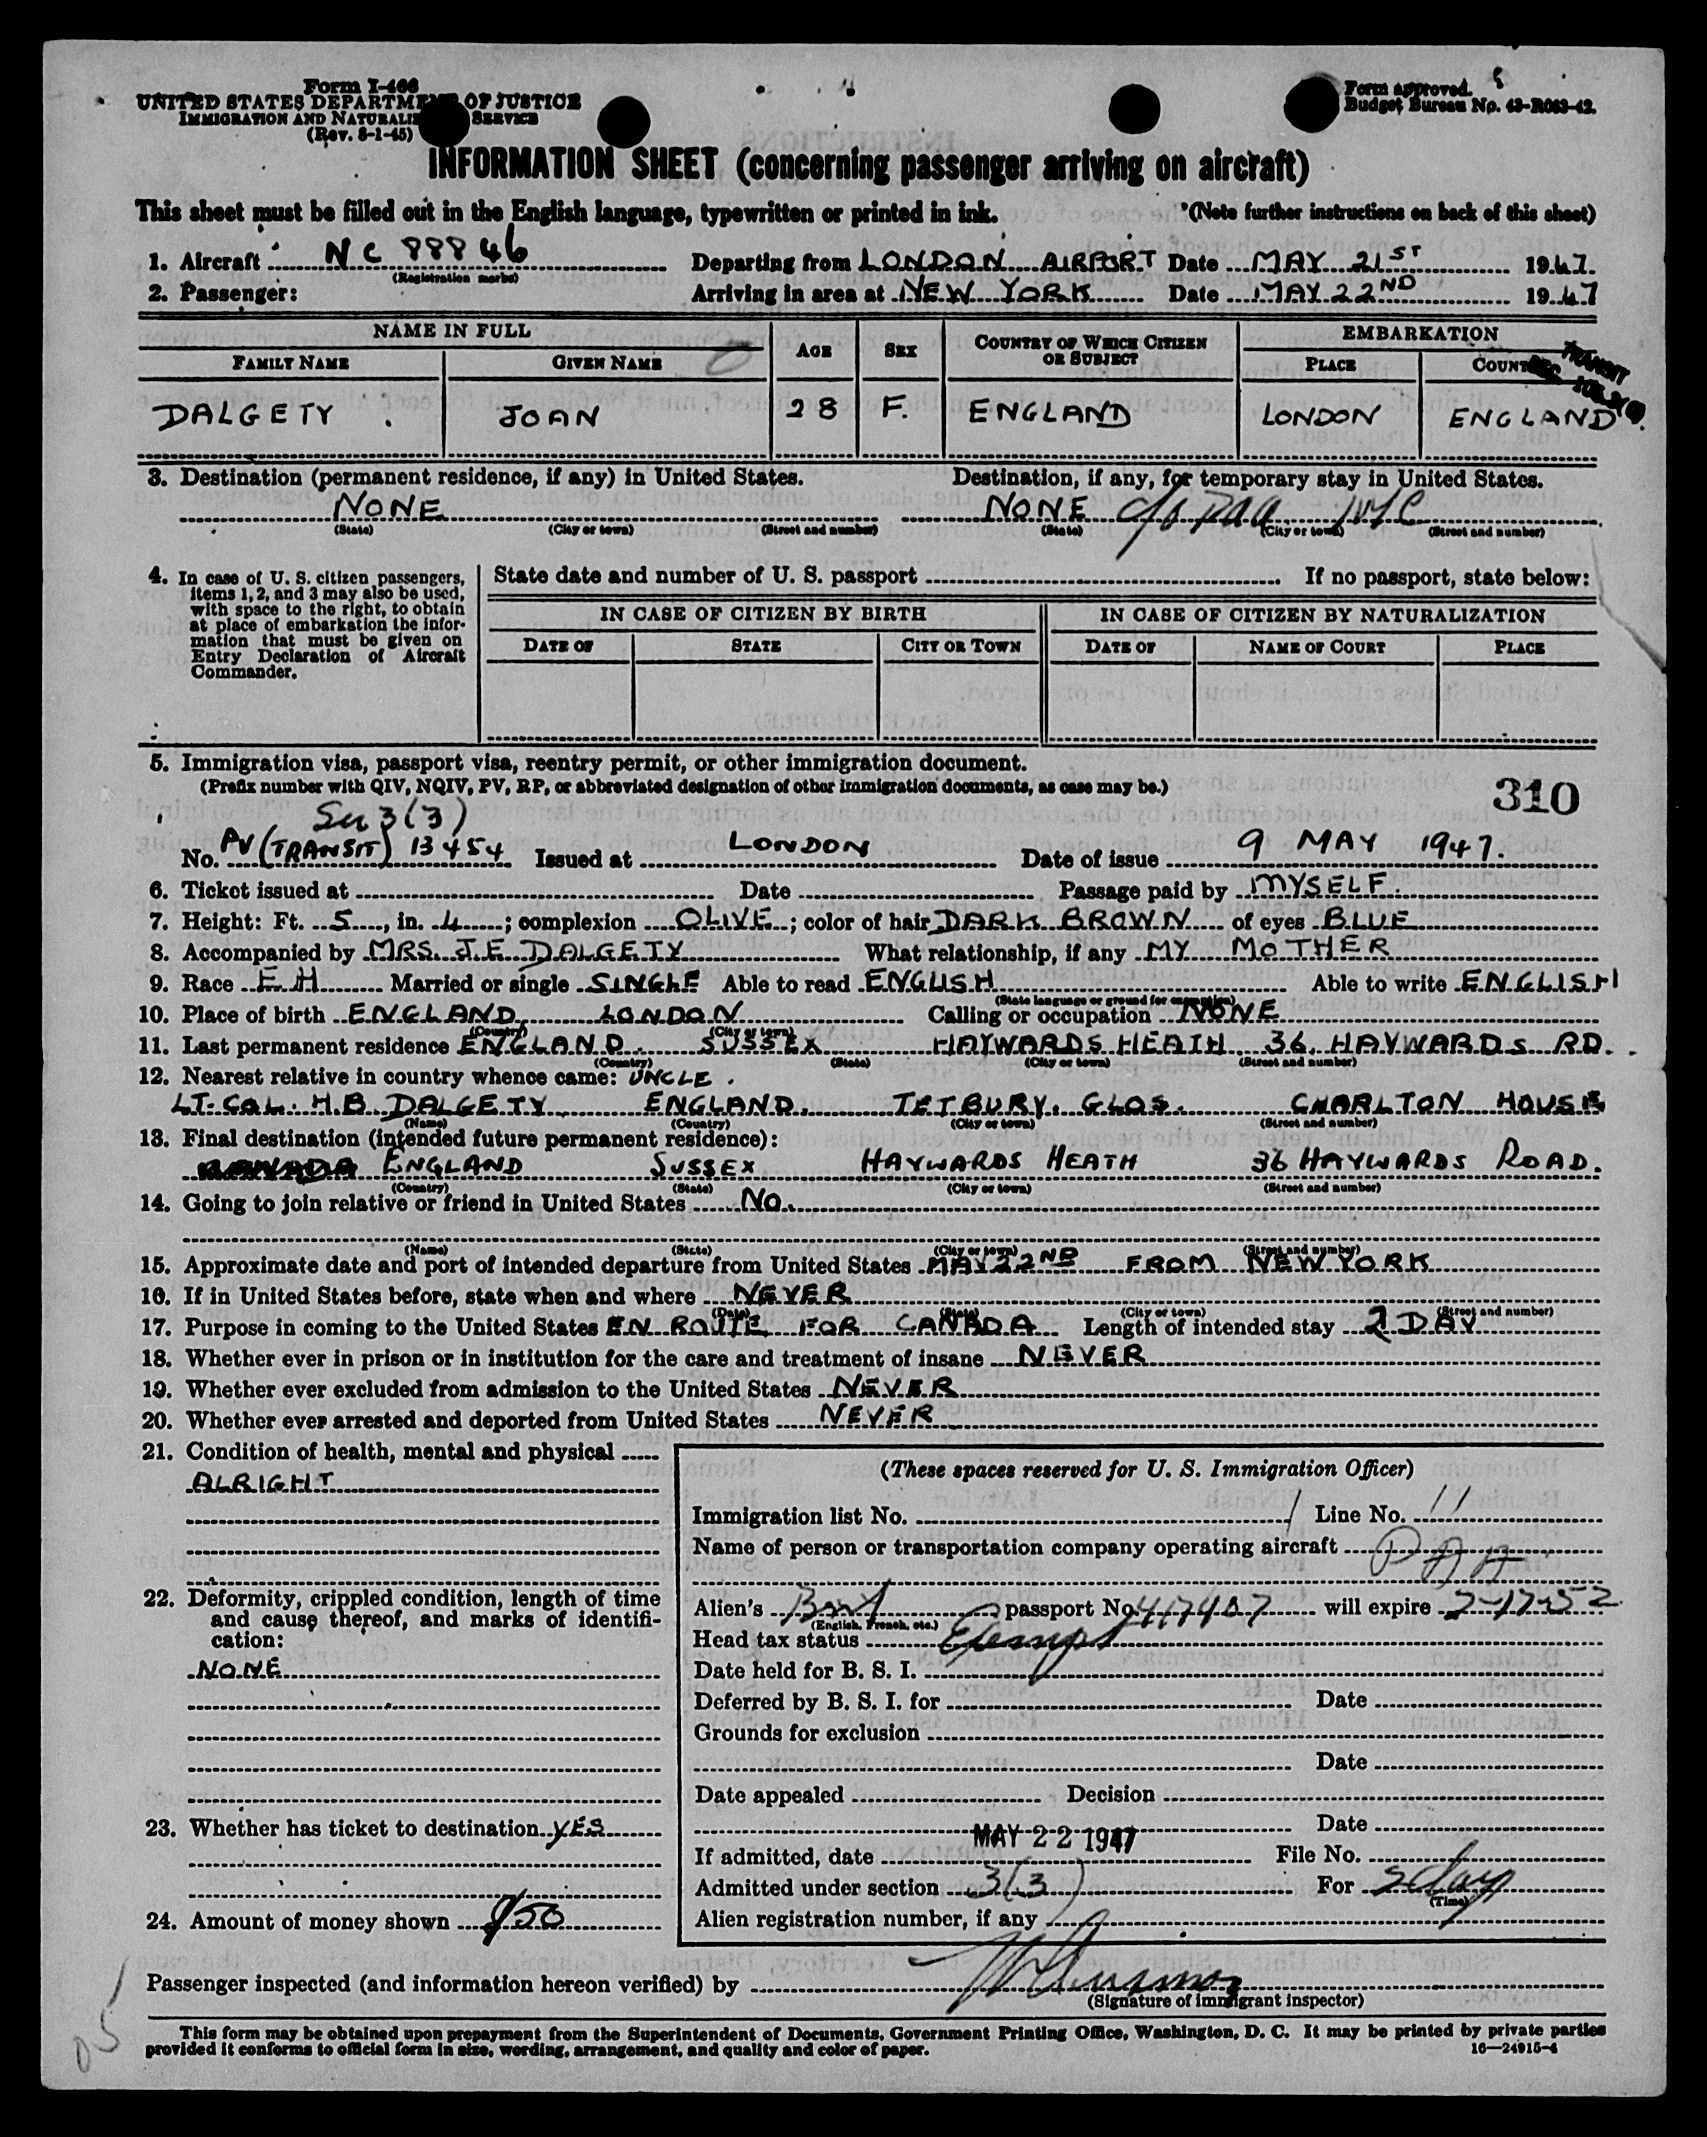 Form I-466
UNITED STATES DEPARTMENT OF JUSTICE
IMMIGRATION AND NATURALIZATION SERVICE
(Rev. 8-1-45)
Form approved.
Budget Bureau No. 43-R063-42.
INFORMATION SHEET (concerning passenger arriving on aircraft)
This sheet must be filled out in the English language, typewritten or printed in ink. (Note further instructions on back of this sheet)
1. Aircraft NC 88846 Departing from LONDON AIRPORT Date MAY 21ST 1947.
(Registration marks)
2. Passenger: Arriving in area at NEW YORK Date MAY 22ND 1947
NAME IN FULL AGE SEX COUNTRY OF WHICH CITIZEN OR SUBJECT EMBARKATION
FAMILY NAME GIVEN NAME PLACE COUNTRY
TRANSIT
DALGETY. JOAN 28 F. ENGLAND LONDON ENGLAND.
3. Destination (permanent residence, if any) in United States. Destination, if any, for temporary stay in United States.
NONE NONE c/o PAA NYC
(State) (City or town) (Street and number) (State) (City or town) (Street and number)
4. In case of U. S. citizen passengers, items 1, 2, and 3 may also be used, with space to the right, to obtain at place of embarkation the information that must be given on Entry Declaration of Aircraft Commander.
State date and number of U. S. passport If no passport, state below:
IN CASE OF CITIZEN BY BIRTH IN CASE OF CITIZEN BY NATURALIZATION
DATE OF STATE CITY OR TOWN DATE OF NAME OF COURT PLACE
5. Immigration visa, passport visa, reentry permit, or other immigration document.
(Prefix number with QIV, NQIV, PV, RP, or abbreviated designation of other immigration documents, as case may be.)
310
3(3)
No. PV (TRANSIT) 13454 Issued at LONDON Date of issue 9 MAY 1947.
6. Ticket issued at Date Passage paid by MYSELF.
7. Height: Ft. 5, in. 4; complexion OLIVE; color of hair DARK BROWN of eyes BLUE
8. Accompanied by MRS. J.E DALGETY What relationship, if any MY MOTHER
9. Race EH Married or single SINGLE Able to read ENGLISH Able to write ENGLISH
(State language or ground for exemption)
10. Place of birth ENGLAND LONDON Calling or occupation NONE
(Country) (City or town)
11. Last permanent residence ENGLAND. SUSSEX HAYWARDS HEATH 36, HAYWARDS RD.
(Country) (State) (City or town) (Street and number)
12. Nearest relative in country whence came: UNCLE.
LT. COL. H.B. DALGETY ENGLAND. TETBURY. GLOS. CHARLTON HOUSE
(Name) (Country) (City or town) (Street and number)
13. Final destination (intended future permanent residence):
ENGLAND SUSSEX HAYWARDS HEATH 36 HAYWARDS ROAD.
(Country) (State) (City or town) (Street and number)
14. Going to join relative or friend in United States NO.
(Name) (State) (City or town) (Street and number)
15. Approximate date and port of intended departure from United States MAY 22ND FROM NEW YORK
16. If in United States before, state when and where NEVER
(Date) (State) (City or town) (Street and number)
17. Purpose in coming to the United States EN ROUTE FOR CANADA Length of intended stay 2 DAY
18. Whether ever in prison or in institution for the care and treatment of insane NEVER
19. Whether ever excluded from admission to the United States NEVER
20. Whether ever arrested and deported from United States NEVER
21. Condition of health, mental and physical
ALRIGHT
22. Deformity, crippled condition, length of time and cause thereof, and marks of identification:
NONE
23. Whether has ticket to destination YES
24. Amount of money shown $50
(These spaces reserved for U. S. Immigration Officer)
Immigration list No. 1 Line No. 11
Name of person or transportation company operating aircraft PAA
Alien's Brit passport No. 417407 will expire 2-17-52
(English, French, etc.)
Head tax status Exempt
Date held for B. S. I.
Deferred by B. S. I. for Date
Grounds for exclusion
Date
Date appealed Decision
Date
If admitted, date MAY 22 1947 File No.
Admitted under section 3(3) For 2 day
(Time)
Alien registration number, if any
Passenger inspected (and information hereon verified) by
(Signature of immigrant inspector)
This form may be obtained upon prepayment from the Superintendent of Documents, Government Printing Office, Washington, D. C. It may be printed by private parties
provided it conforms to official form in size, wording, arrangement, and quality and color of paper. 16—24915-4